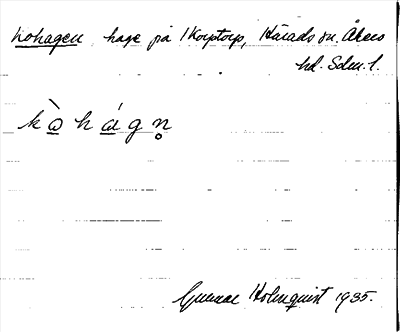 Kohagen, hage på Korptorp, Härads sn. Åkers
hd. Sdm. l.
kò̲háɡn̥
Gunnar Holmquist 1935.